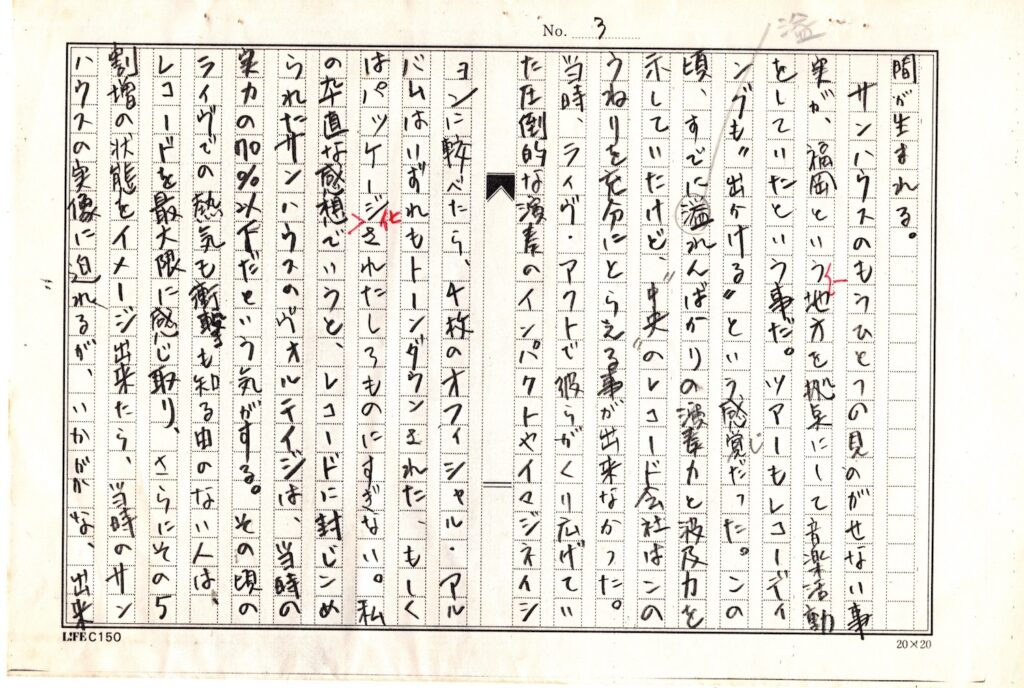 No. 3
溢
間が生まれる。
　サンハウスのもうひとつの見のがせない事
実が、福岡という地方を拠点にして音楽活動
をしていたという事だ。ツアーもレコーディ
ングも〝出かける〟という感覚だった。この
じ
頃、すでに溢れんばかりの演奏力と波及力を
示していたけど、〝中央〟のレコード会社はこの
うねりを充分にとらえる事が出来なかった。
当時、ライヴ・アクトで彼らがくり広げてい
た圧倒的な演奏のインパクトやイマジネイシ
ョンに較べたら、4枚のオフィシャル・アル
バムはいずれもトーンダウンされた、もしく
はパッケージされたしろものにすぎない。私
化
の卒直な感想でいうと、レコードに封じこめ
られたサンハウスのヴォルテイジは、当時の
実力の70%以下だという気がする。その頃の
ライヴでの熱気も衝撃も知る由のない人は、
レコードを最大限に感じ取り、さらにその5
割増の状態をイメージ出来たら、当時のサン
ハウスの実像に迫れるが、いかがな、出来
LIFE C150
20×20